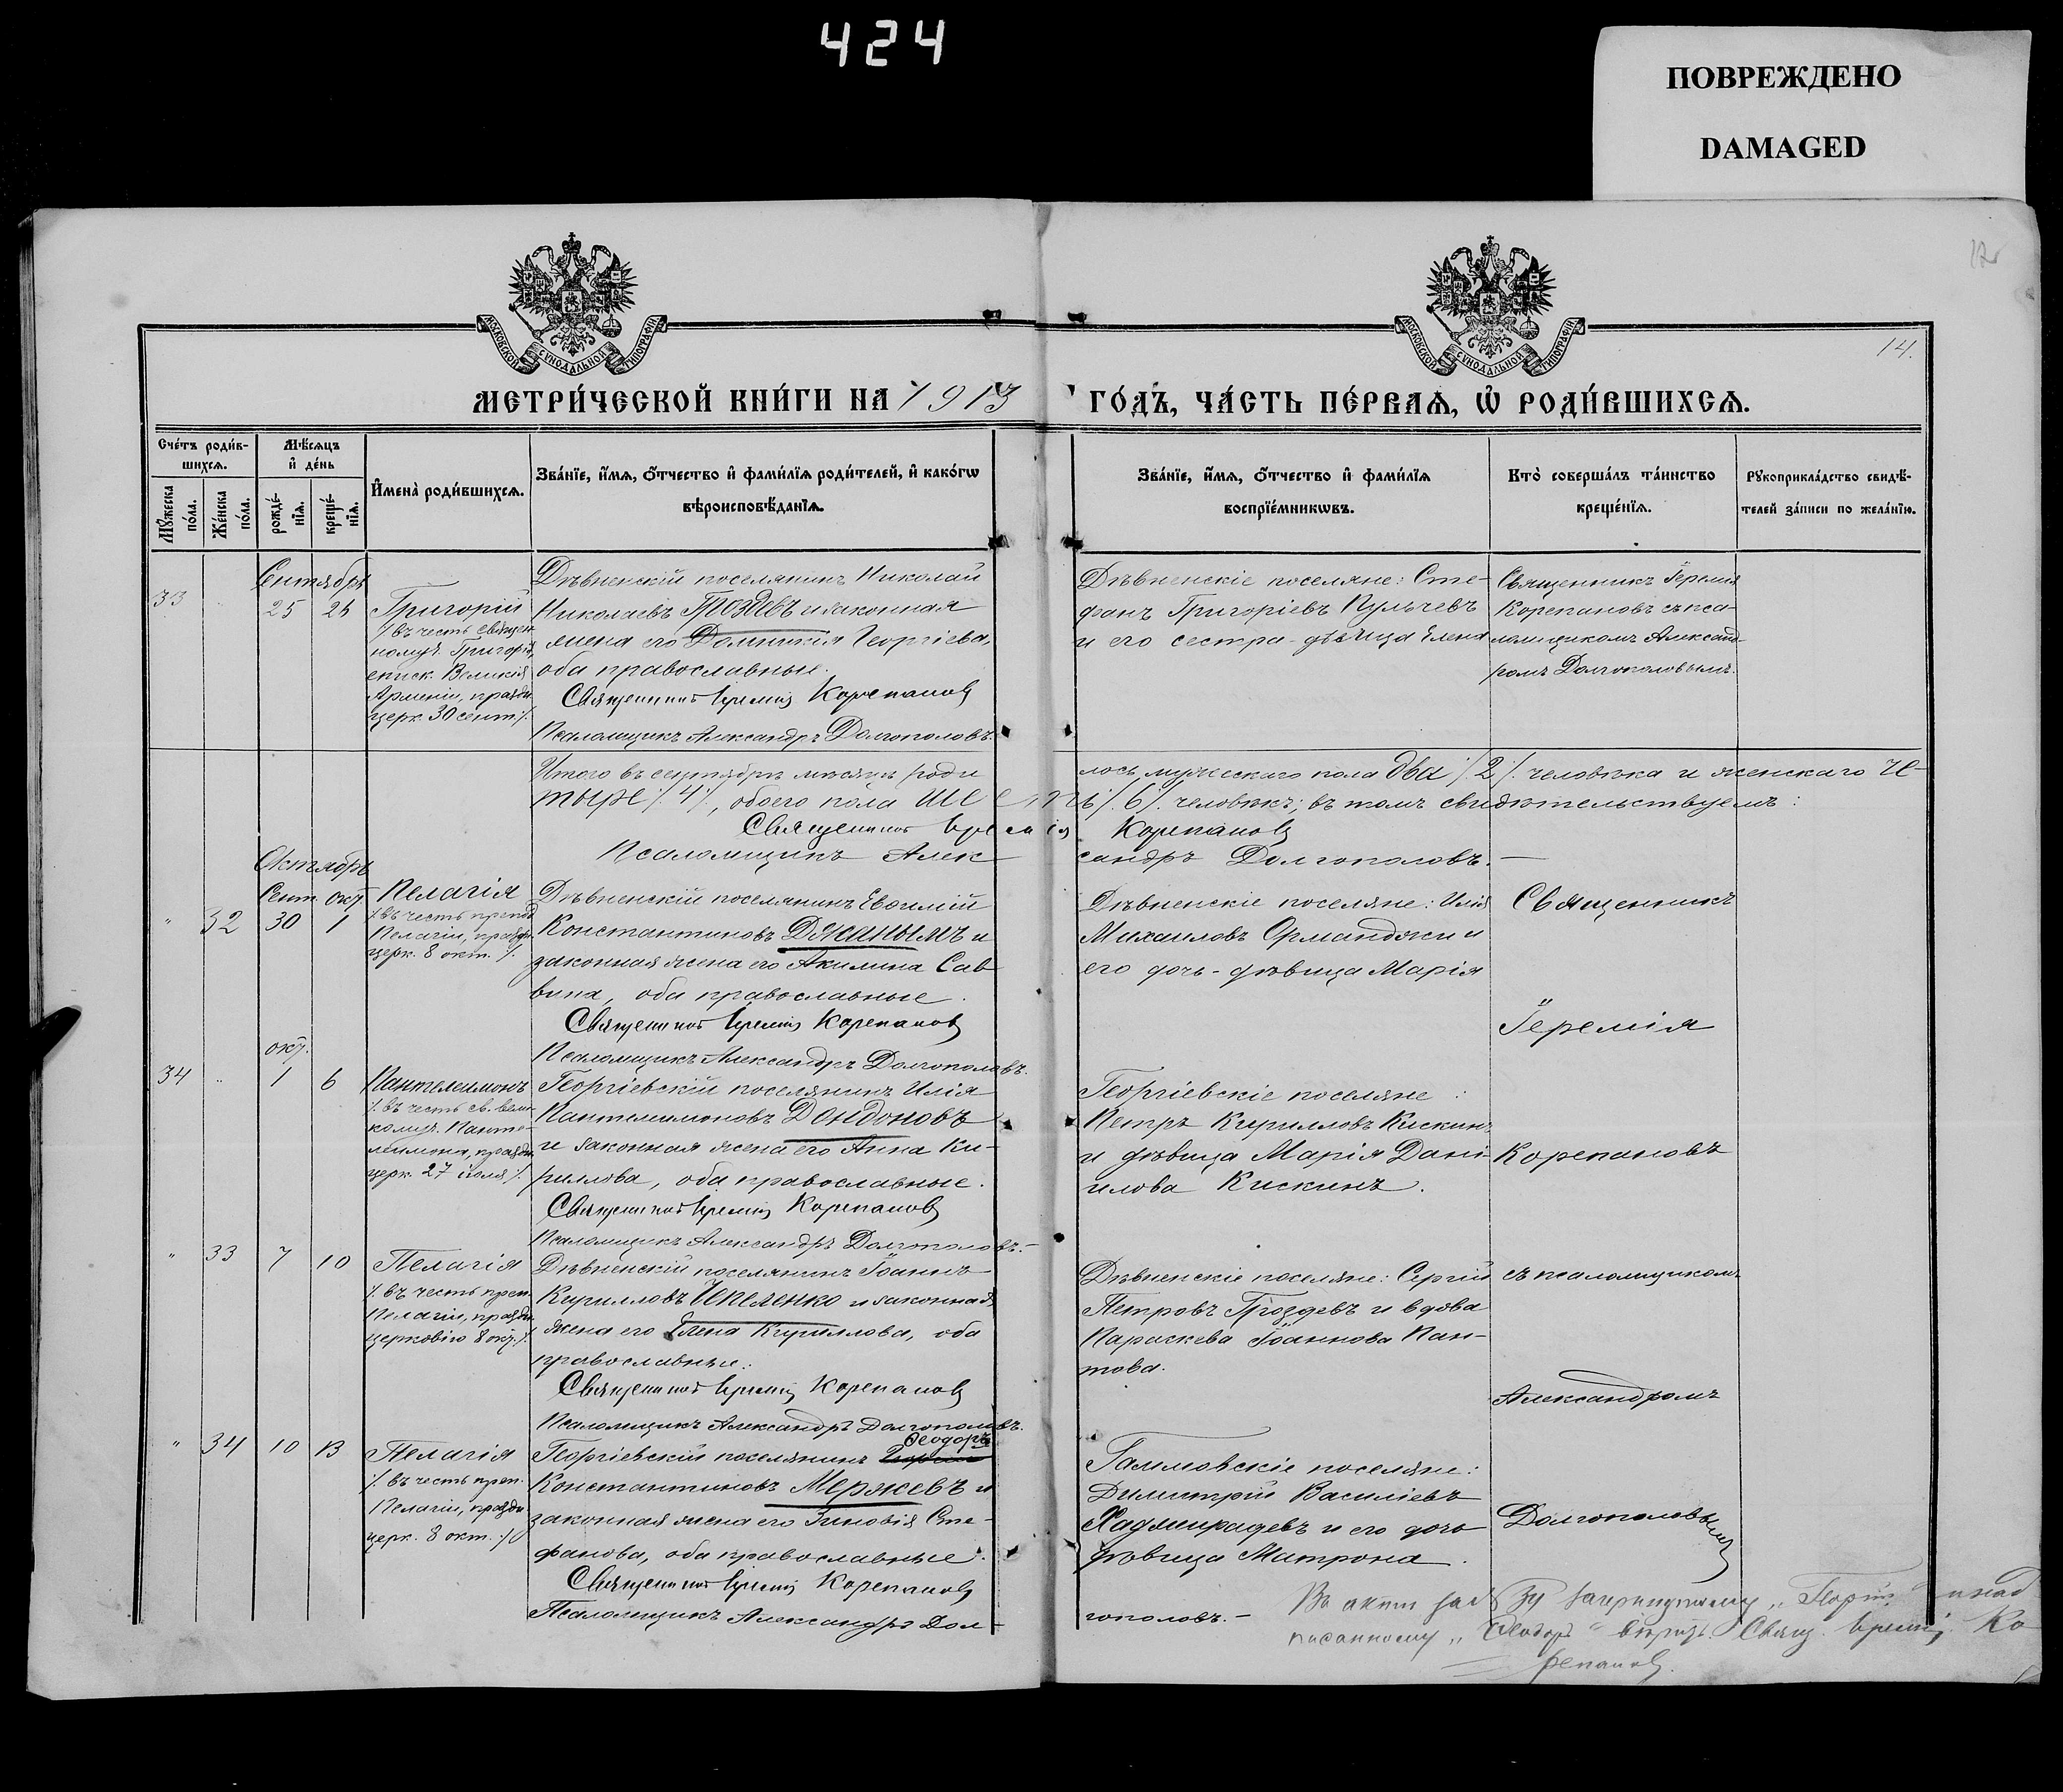 424
ПОВРЕЖДЕНО
DAMAGED
14.
МОСКОВСКОЙ СѴНОДАЛЬНОЙ ТИПОГРАФІИ
МОСКОВСКОЙ СѴНОДАЛЬНОЙ ТИПОГРАФІИ
МЕТРИ́ЧЕСКОЙ КНИ́ГИ НА 1913 ГО́ДЪ, ЧА́СТЬ ПЕ́РВАѦ, Ѡ҆ РОДИ́ВШИХСѦ.
Сче́тъ роди́в-
шихсѧ.
Мѣ́сѧцъ
и҆ де́нь
Мꙋ́жеска
по́ла.
Же́нска
по́ла.
рожде́-
нїѧ.
креще́-
нїѧ.
И҆мена̀ роди́вшихсѧ.
Зва́нїе, и҆́мѧ, ѻ҆́тчество и҆ фами́лїѧ роди́телей, и҆ како́гѡ
вѣроисповѣ́данїѧ.
Зва́нїе, и҆́мѧ, ѻ҆́тчество и҆ фами́лїѧ
воспрїе́мникѡвъ.
Кто̀ соверша́лъ та́инство
креще́нїѧ.
Рꙋкоприкла́дство свидѣ́-
телей за́писи по жела́нїю.
Сентябрь
33 " 25 26
Григорій
/. въ честь священ-
номуч. Григорія,
еписк. Великія
Арменіи, праздн.
церк. 30 сент. /.
Дѣвненскій поселянинъ Николай
Николаевъ Гроздевъ и законная
жена его Домникія Георгіева,
оба православные.
Священникъ Іеремія Корепановъ
Псаломщикъ Александръ Долгополовъ.
Дѣвненскіе поселяне: Сте-
фанъ Григоріевъ Кульчевъ
и его сестра - дѣвица Елена
Священникъ Іеремія
Корепановъ съ пса-
ломщикомъ Александ-
ромъ Долгополовымъ.
Итого въ сентябрѣ мѣсяцѣ роди лось мужескаго пола два /. 2 /. человѣка и женскаго че-
тыре /. 4 /., обоего пола шесть /. 6 /. человѣкъ; въ томъ свидѣтельствуемъ:
Священникъ Іеремія Корепановъ
Псаломщикъ Александръ Долгополовъ. —
Октябрь
Сент. окт.
" 32 30 1
Пелагія
/. въ честь препод.
Пелагіи, праздн.
церк. 8 окт. /.
Дѣвненскій поселянинъ Евѳимій
Константиновъ Дѫжанымъ и
законная жена его Акилина Сав-
вина, оба православные.
Священникъ Іеремія Корепановъ
Псаломщикъ Александръ Долгополовъ.
Дѣвненскіе поселяне: Илія
Михаиловъ Орманджи и
его дочь - дѣвица Марія
Священникъ
Іеремія
окт.
34 " 1 6
Пантелеимонъ
/. въ честь св. вели-
комуч. Панте-
леимона, праздн.
церк. 27 іюля /.
Георгіевскій поселянинъ Илія
Пантелеимоновъ Дондоновъ
и законная жена его Анна Ки-
риллова, оба православные.
Священникъ Іеремія Корепановъ
Псаломщикъ Александръ Долгополовъ. —
Георгіевскіе поселяне:
Петръ Кирилловъ Кискинъ
и дѣвица Марія Дані-
илова Кискинъ.
Корепановъ
" 33 7 10
Пелагія
/. въ честь преп.
Пелагіи, праздн.
церковію 8 окт. /.
Дѣвненскій поселянинъ Іоаннъ
Кирилловъ Чепеленко и законная
жена его Елена Кириллова, оба
православные.
Священникъ Іеремія Корепановъ
Псаломщикъ Александръ Долгополовъ.
Дѣвненскіе поселяне: Сергій
Петровъ Гроздевъ и вдова
Параскева Іоаннова Пан-
това.
съ псаломщикомъ
Александромъ
" 34 10 13
Пелагія
/. въ честь преп.
Пелагіи, праздн.
церк. 8 окт. /.
Ѳеодоръ
Георгіевскій поселянинъ
Константиновъ Мержевъ и
законная жена его Зиновія Сте-
фанова, оба православные.
Священникъ Іеремія Корепановъ
Псаломщикъ Александръ Дол-
гополовъ. —
Галиловскіе поселяне:
Димитрій Василіевъ
Хаджирадевъ и его дочь
дѣвица Матрона.
Долгополовымъ
Въ актѣ за № 34 зачеркнутому „Георгій" и над
писанному „Ѳеодоръ" вѣрить. Свящ. Іеремія Ко
репановъ.